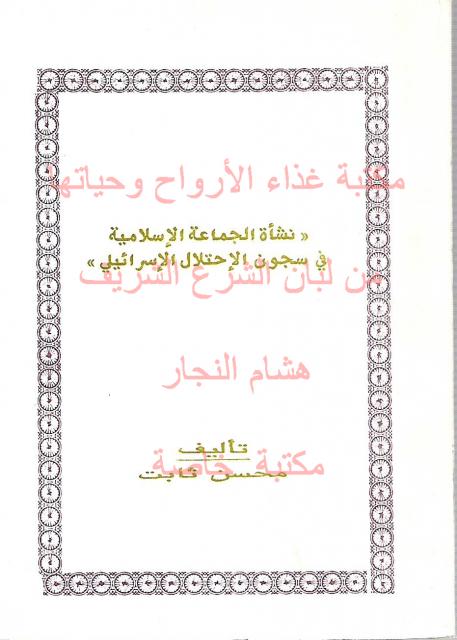 مكتبة غذاء الأرواح وحياتها
« نشأة الجماعة الإسلامية
في سجون الإحتلال الإسرائيلي »
من لبان الشرع الشريف
هشام النجار
تأليف
مكتبة خاصة
محسن ثابت